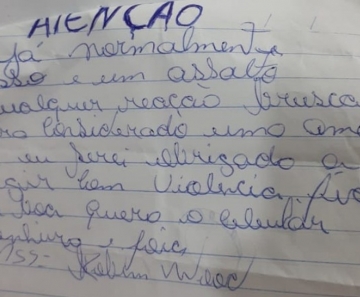 ATENÇÃO
já normalmente
sso e um assalto
ualquer reação brusca
ra considerado uma ame
eu serei obrigado a
gir com violencia.
boa quero o celular
nheiro e joia
ASS: